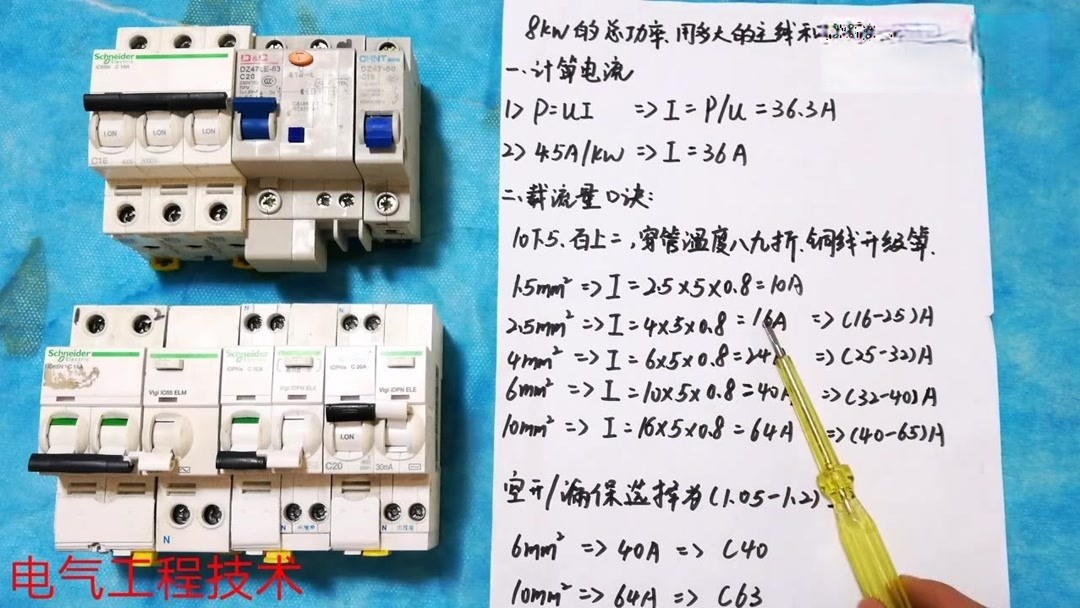 Schneider
Electric
iC65N C 16A
I.ON
I.ON
I.ON
C16
DZ47LE-63
C20
CHNT
C16
DZ47-60
Schneider
Electric
Vigi iC65 ELM
Schneider
Electric
Vigi iDPN ELE
Vigi iDPN ELE
I.ON
C20
30mA
N
N
N
N
N
电气工程技术
8kW的总功率、用多大的主线和
一、计算电流
1> P=UI => I=P/U=36.3A
2> 4.5A/kW => I=36A
二、载流量口诀:
10下5、百上二,穿管温度八九折、铜线升级算.
1.5mm² => I=2.5×5×0.8=10A
2.5mm² => I=4×5×0.8=16A => (16-25)A
4mm² => I=6×5×0.8=24 => (25-32)A
6mm² => I=10×5×0.8=40A => (32-40)A
10mm² => I=16×5×0.8=64A => (40-65)A
空开/漏保选择为(1.05-1.2)
6mm² => 40A => C40
10mm² => 64A => C63